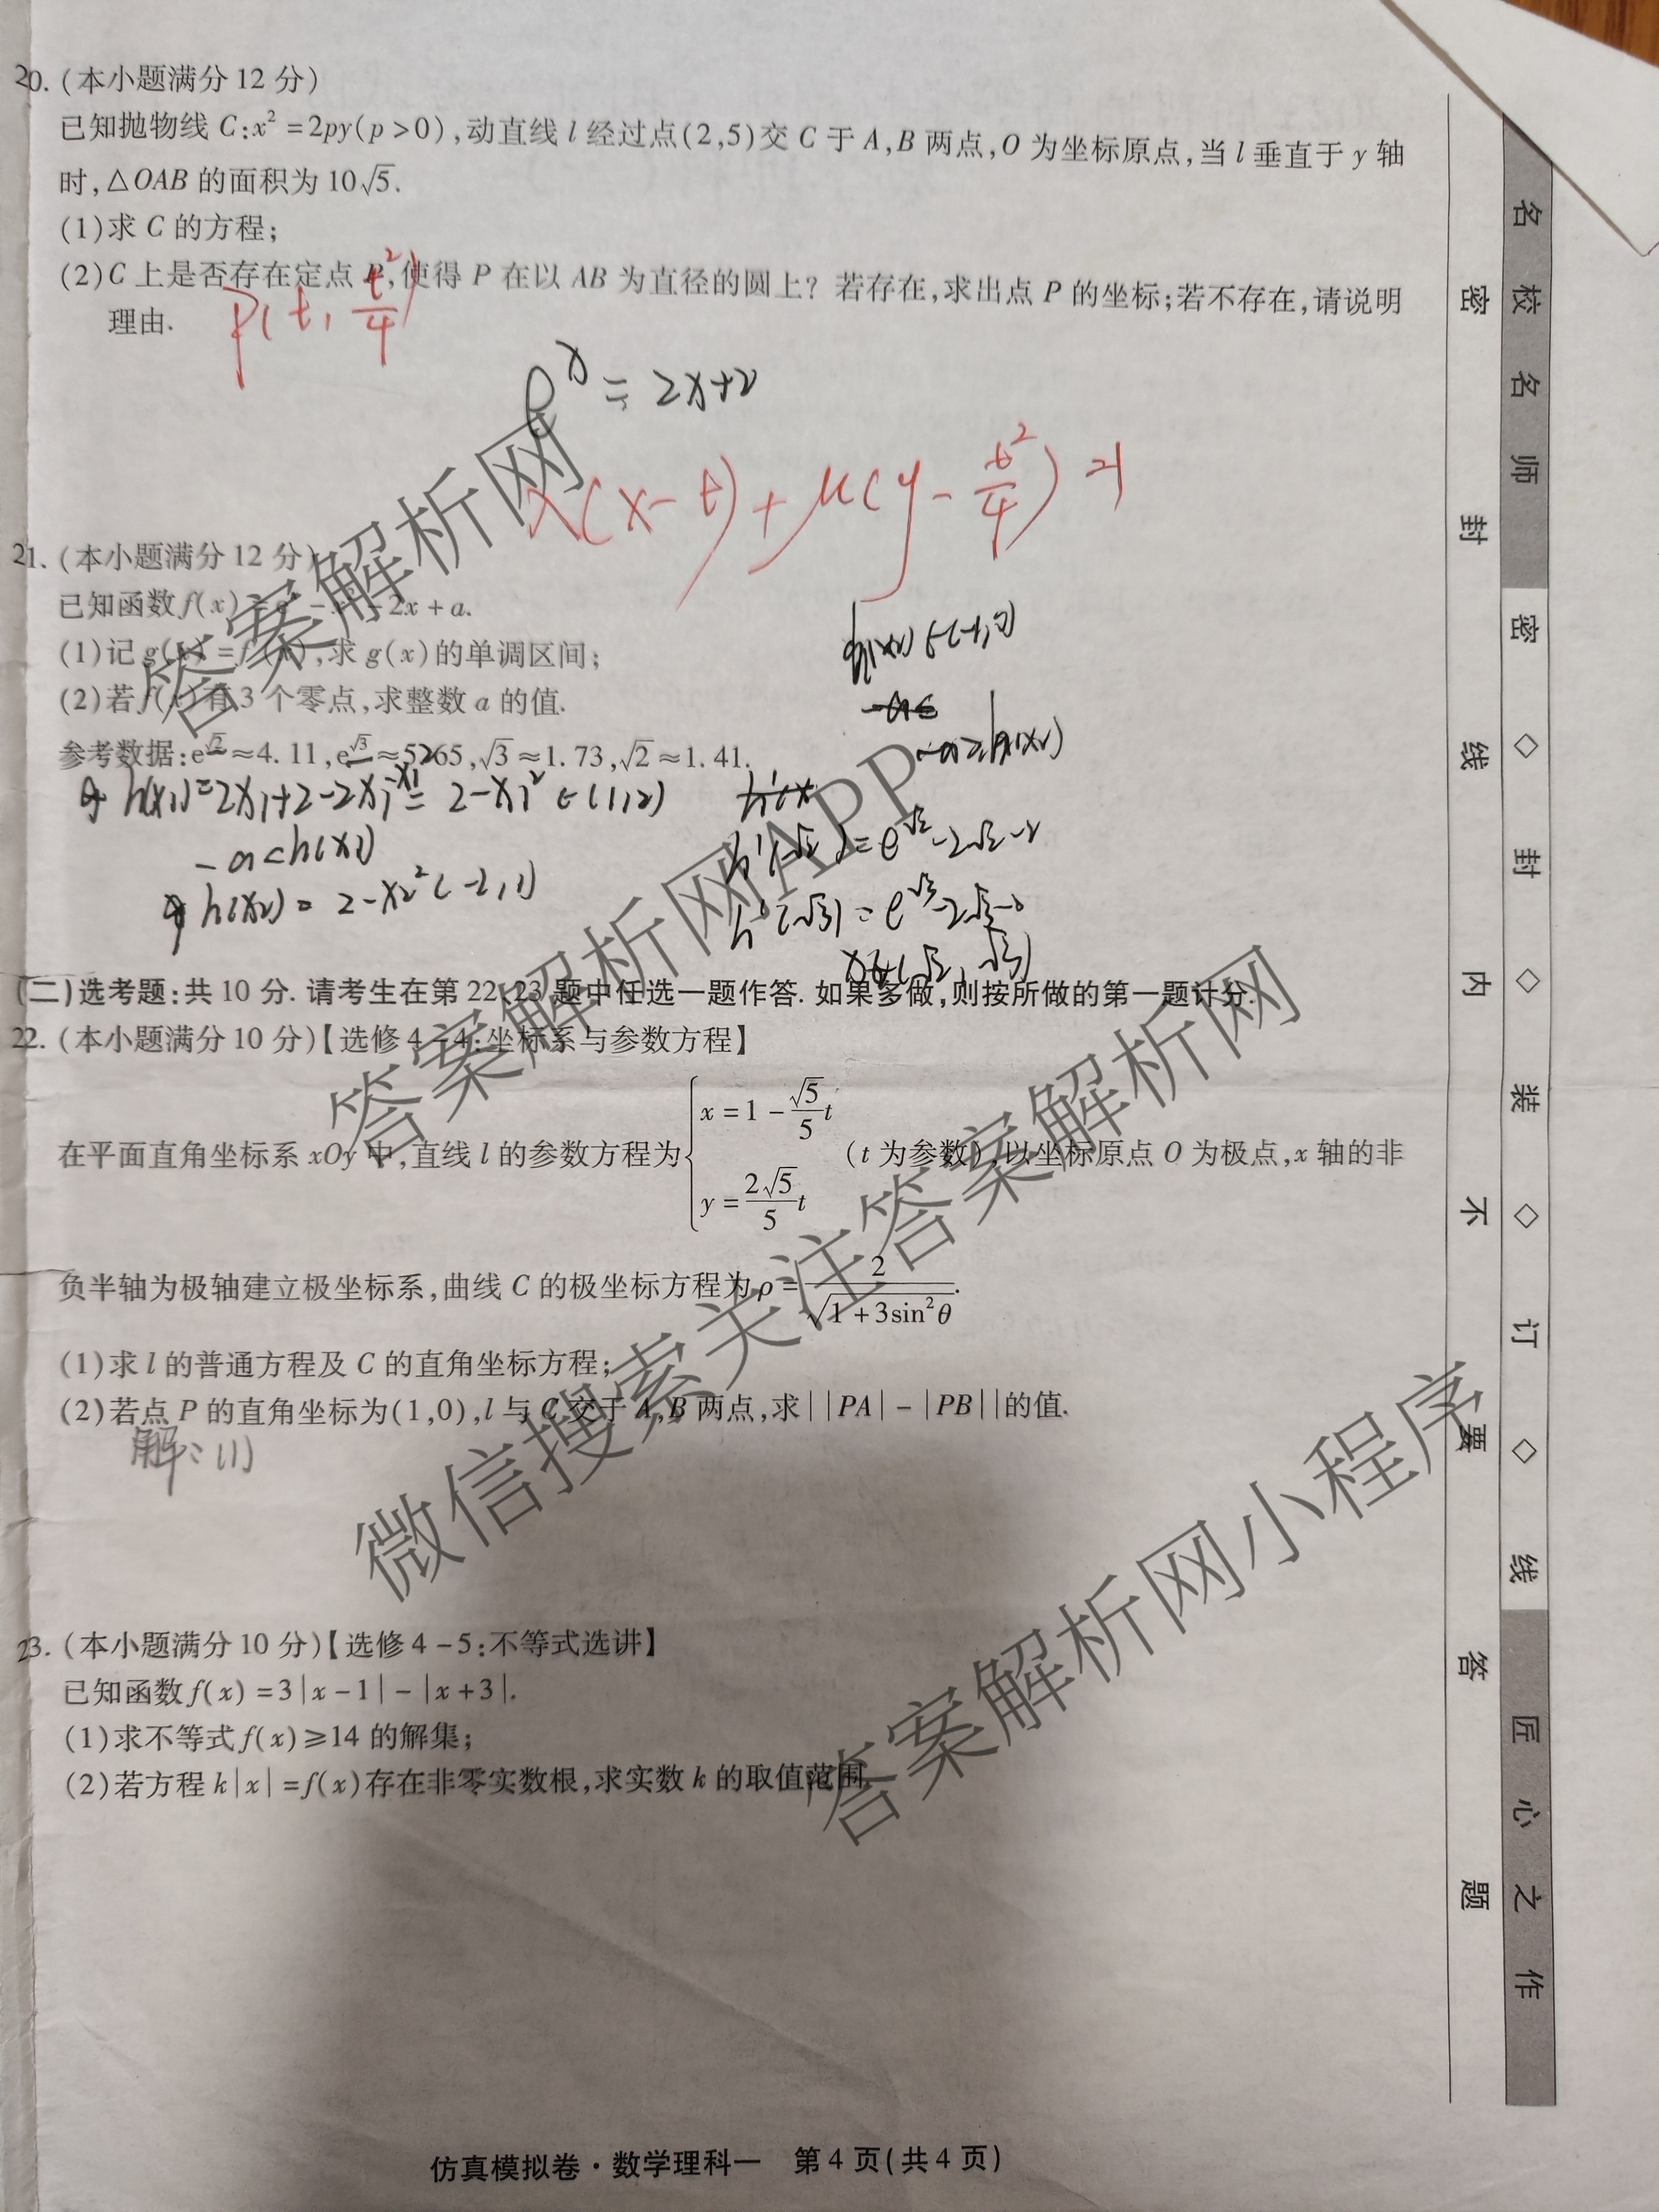 20. (本小题满分 12 分)
已知抛物线 C:x²=2py(p>0),动直线 l 经过点(2,5)交 C 于 A,B 两点,O 为坐标原点,当 l 垂直于 y 轴
时,△OAB 的面积为 10√5.
(1)求 C 的方程;
(2)C 上是否存在定点 P,使得 P 在以 AB 为直径的圆上? 若存在,求出点 P 的坐标;若不存在,请说明
理由.
P(t, t²/4)
eˣ = 2x+2
λ(x-t)+μ(y-t²/4)=
21. (本小题满分 12 分)
已知函数 f(x) -2x+a.
(1)记 g(x)=f (x),求 g(x)的单调区间;
(2)若 f(x)有 3 个零点,求整数 a 的值.
参考数据:e^√2≈4.11,e^√3≈5.65,√3≈1.73,√2≈1.41.
h(x₁)=2x₁+2-2x₁-x₁²=2-x₁²∈(1,2)
-a<h(x₁)
h(x₂)=2-x₂²(-1)
-a>h(x₂)
=e^√2-2√2-2
=e^√3-2√3
(√2,√3)
(二)选考题:共 10 分. 请考生在第 22、23 题中任选一题作答. 如果多做,则按所做的第一题计分.
22. (本小题满分 10 分)【选修 4-4:坐标系与参数方程】
在平面直角坐标系 xOy 中,直线 l 的参数方程为{x=1-(√5/5)t, y=(2√5/5)t (t 为参数),以坐标原点 O 为极点,x 轴的非
负半轴为极轴建立极坐标系,曲线 C 的极坐标方程为 ρ=2/√(1+3sin²θ).
(1)求 l 的普通方程及 C 的直角坐标方程;
(2)若点 P 的直角坐标为(1,0),l 与 C 交于 A,B 两点,求||PA|-|PB||的值.
解:(1)
23. (本小题满分 10 分)【选修 4-5:不等式选讲】
已知函数 f(x)=3|x-1|-|x+3|.
(1)求不等式 f(x)≥14 的解集;
(2)若方程 k|x|=f(x)存在非零实数根,求实数 k 的取值范围.
仿真模拟卷·数学理科一 第 4 页(共 4 页)
密 封 线 内 不 要 答 题
名校名师 密◇封◇装◇订◇线 匠心之作
答案解析网
答案解析网APP
微信搜索关注答案解析网
答案解析网小程序